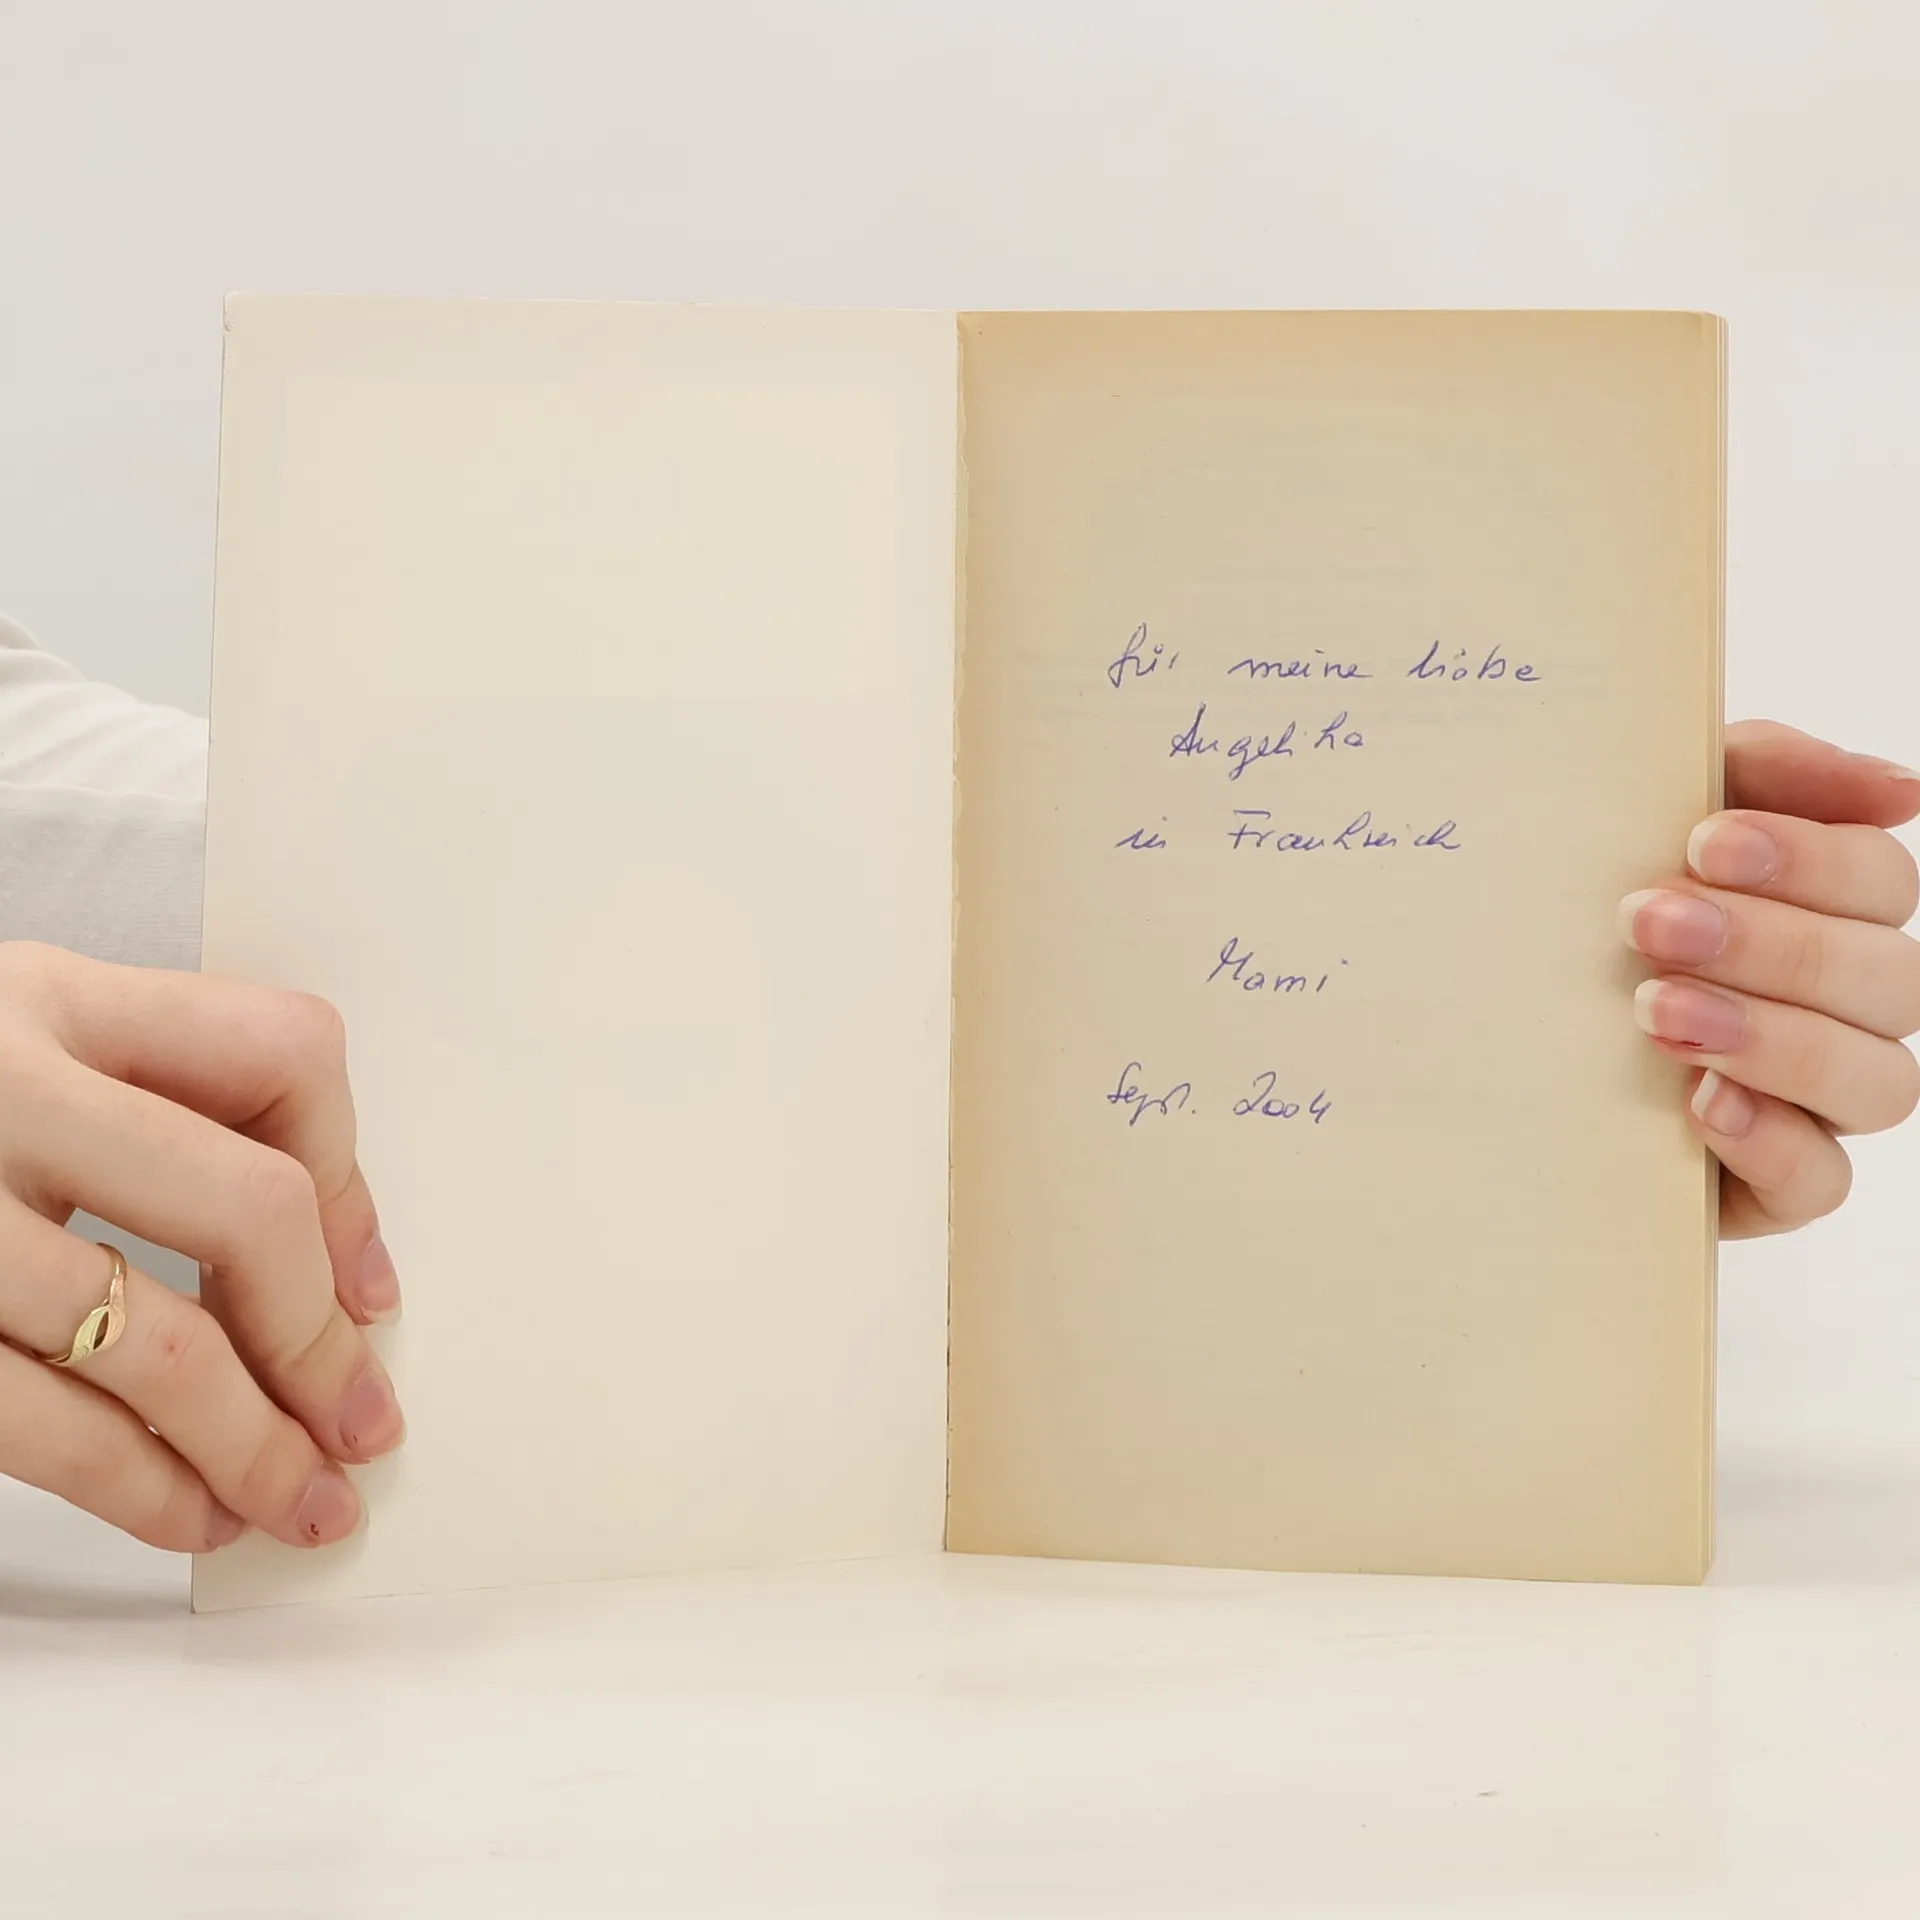 für meine liebe
Angelika
in Frankreich
Mami
Sept. 2004